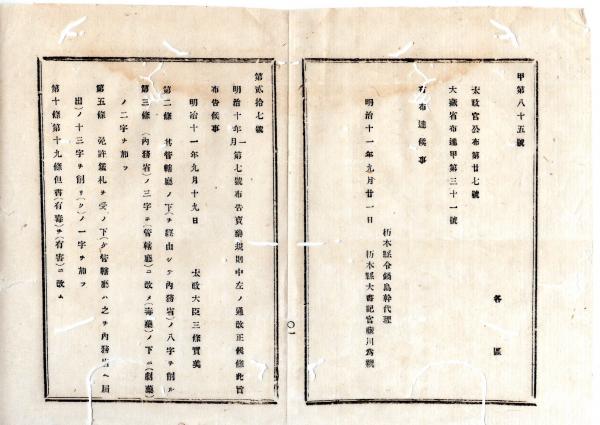 甲第八十五號
各區
太政官公布第廿七號
大藏省布達甲第三十一號
右布達候事
明治十一年九月廿一日
栃木縣令鍋島幹代理
栃木縣大書記官藤川爲親
〇一
第貳拾七號
明治十年一月第七號布告賣藥規則中左ノ通改正候條此旨
布告候事
明治十一年九月十九日 太政大臣三條實美
第二條 其管轄廳ノ下ヲ經由シテ內務省ノ八字ヲ削ル
第三條 (內務省)ノ三字ヲ(管轄廳)ニ改メ(毒藥)ノ下ニ(劇藥)
ノ二字ヲ加フ
第五條 免許鑑札ヲ受ノ下(ケ管轄廳ハ之ヲ內務省ヘ屆
出)ノ十三字ヲ削リ(ク)ノ一字ヲ加フ
第十條第十九條但書(有毒)ヲ(有害)ニ改ム